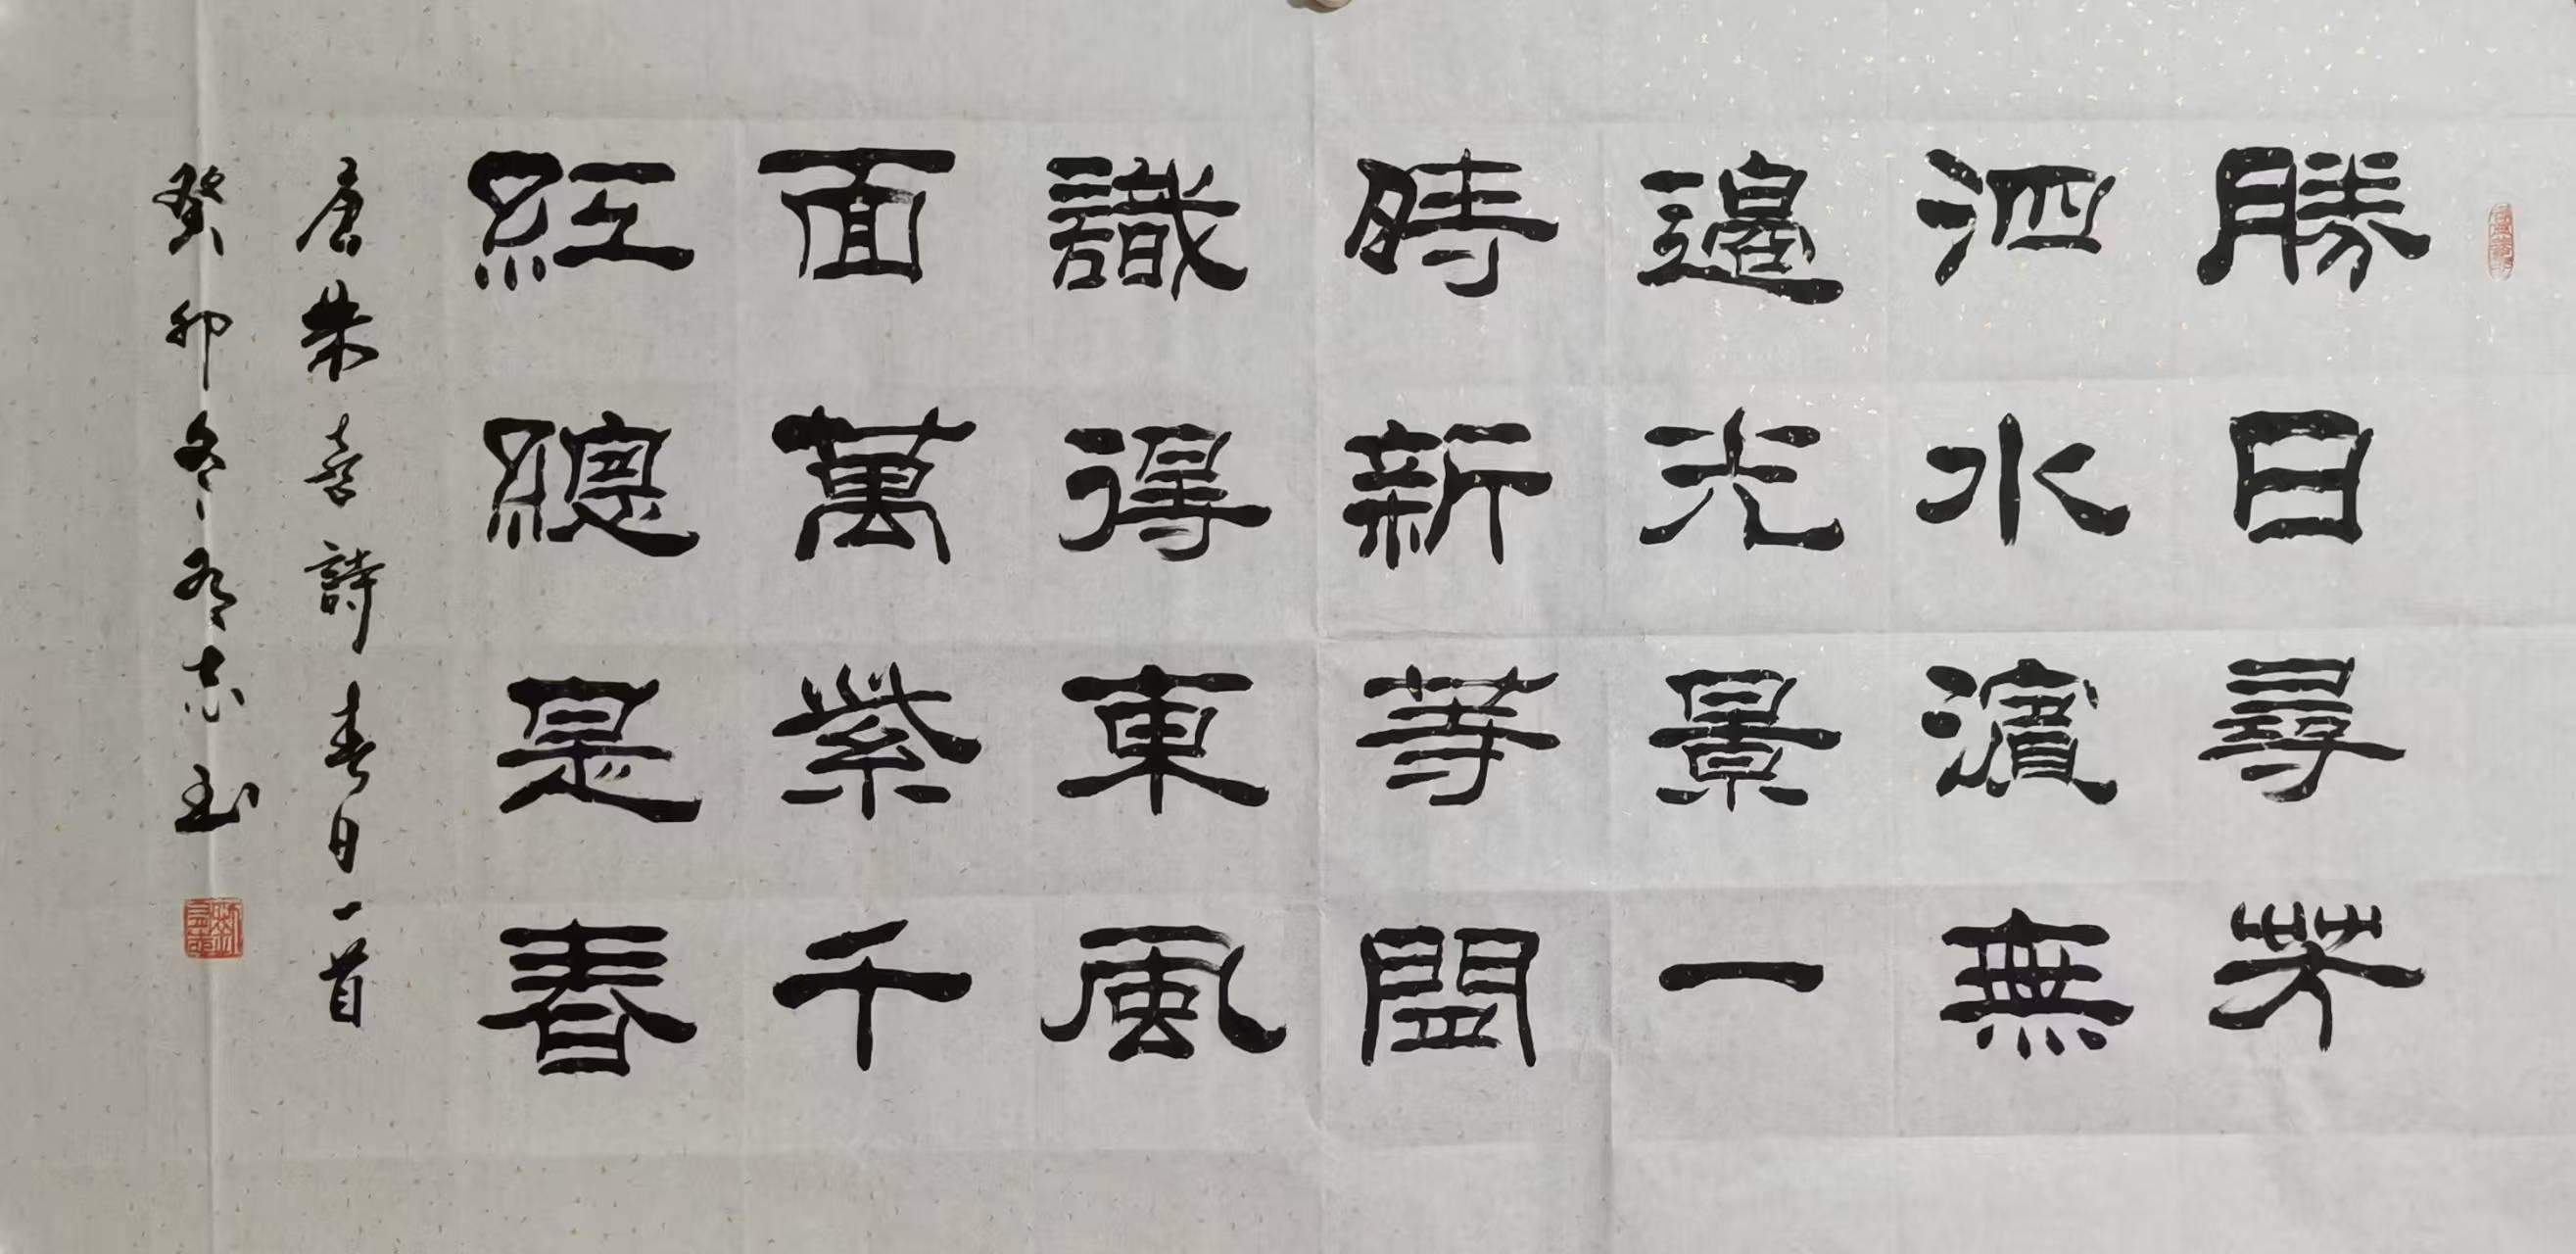 勝日尋芳
泗水濱無
邊光景一
時新等閒
識得東風
面萬紫千
紅總是春
唐朱熹詩春日一首
癸卯冬有志书